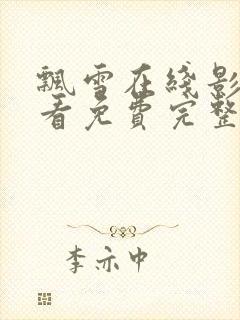 飘雪在线影
看免费完整
李亦中